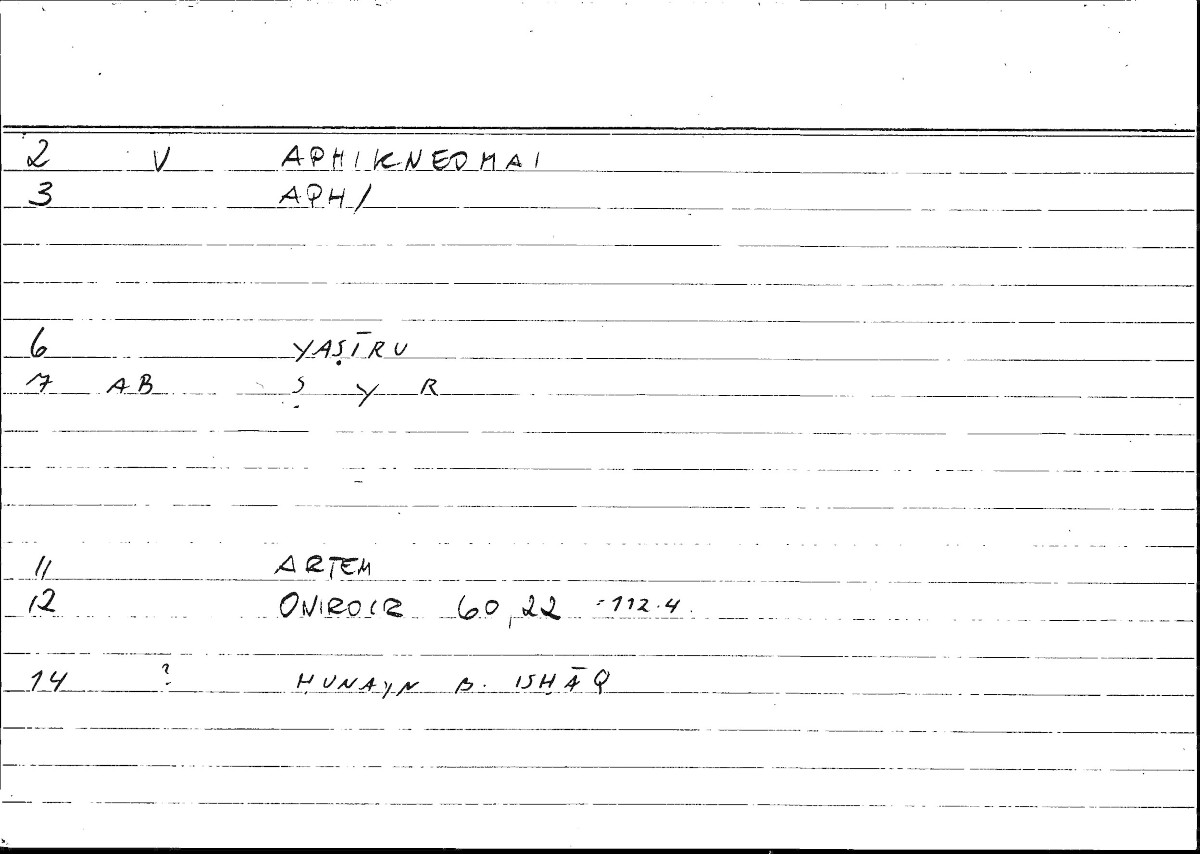 2 V APHIKNEOMAI
3 APH/
6 YAṢĪRU
7 AB Ṣ Y R
11 ARTEM
12 ONIROCR 60,22 = 112.4.
14 ? ḤUNAYN B. ISḤĀQ